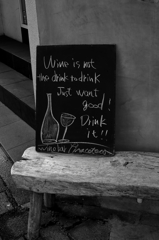 Wine is not
the drink to drink
Just want
good!
Drink
it!!